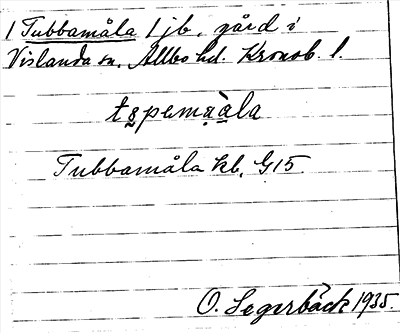 / Tubbamåla 1 jb, gård i
Vislanda sn, Allbo hd. Kronob. l.
tspemaàla
Tubbamåla kb, G15
O. Segerbäck 1935.